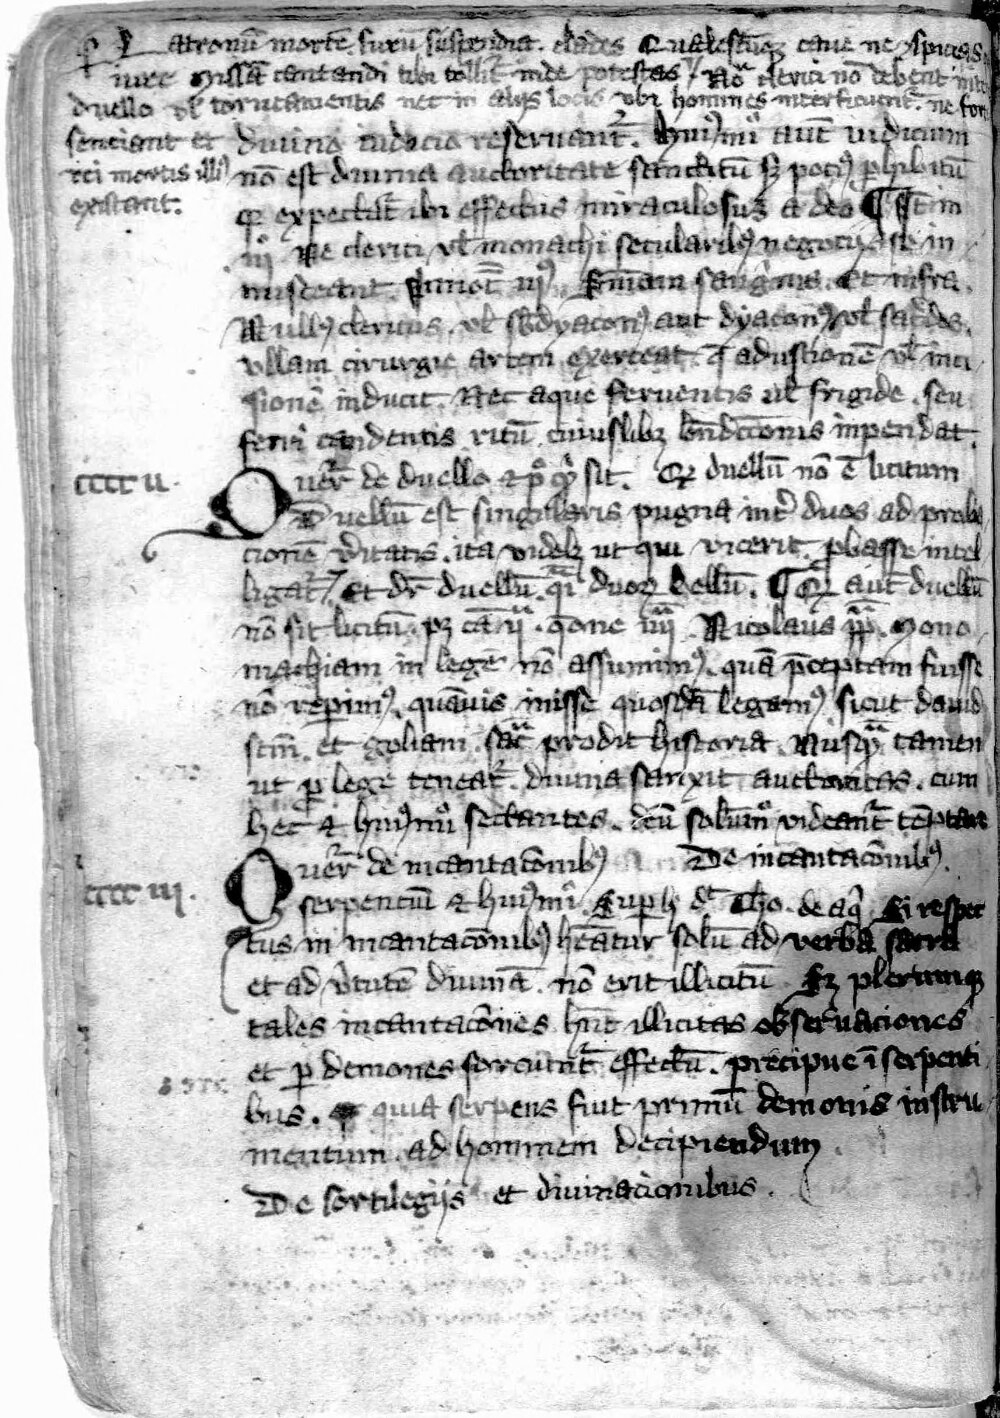 latronum mortem furum suspendia clades Qualescumque cave ne
nec missam cantandi tibi tollitur inde potestas Nota clerici non debent
duello vel torneamentis nec in aliis locis ubi homines interficiuntur ne
senciant et
rei mortis illius
existant.
divino iudicio reservantur. huiusmodi autem iudicium
non est divina auctoritate sancitum sed pocius prohibitum
quia expectatur ibi effectus miraculosus a deo ¶ Item in
iii Ne clerici vel monachi secularibus negociis se in
misceant. Sentenciam sanguinis. Et infra.
Nullus clericus vel subdyaconus aut dyaconus vel sacerdos
ullam cirurgie artem exerceat que adustionem vel inci
sionem inducit. Nec aque ferventis vel frigide seu
ferri candentis ritum cuiuslibet benediccionis inpendat.
cccc ii.
Queritur de duello sit. Quod duellum non est licitum
Duellum est singularis pugna inter duos ad proba
cionem veritatis ita videlicet ut qui vicerit probasse intel
ligatur Et dicitur duellum quasi duorum bellum. ¶ Quod autem duellum
non sit licitum patet causa ii questione iiii Nicolaus papa. Mono
machiam in legem non assumimus quam preceptam fuisse
non reperimus quamvis inisse quosdam legamus sicut david
sanctum et goliam sacra prodit historia Nusquam tamen
ut pro lege teneatur divina sanxit auctoritas cum
hec et huiusmodi sectantes deum solummodo videantur temptare
cccc iii.
Queritur de incantacionibus De incantacionibus.
serpentum et huiusmodi Super hoc dicit Tho. de aquino Si respec
tus in incantacionibus habeatur solum ad verba sacra
et ad virtutem divinam non erit illicitum Sed plerumque
tales incantaciones habent illicitas observaciones
et per demones sorciuntur effectum. precipue in serpenti
bus. quia serpens fuit primum demonis instru
mentum ad hominem decipiendum
De sortilegiis et divinacionibus.